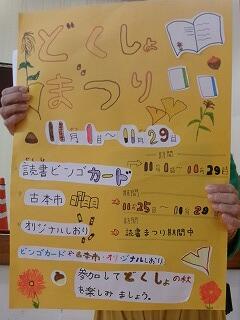 どくしょ
まつり
11月1日〜11月29日
読書ビンゴカード
期間
11月1日〜11月29日
古本市
期間
11月25日〜11月29日
オリジナルしおり
期間
読書まつり期間中
ビンゴカードや古本市・オリジナルしおり
参加してどくしょの秋
を楽しみましょう。